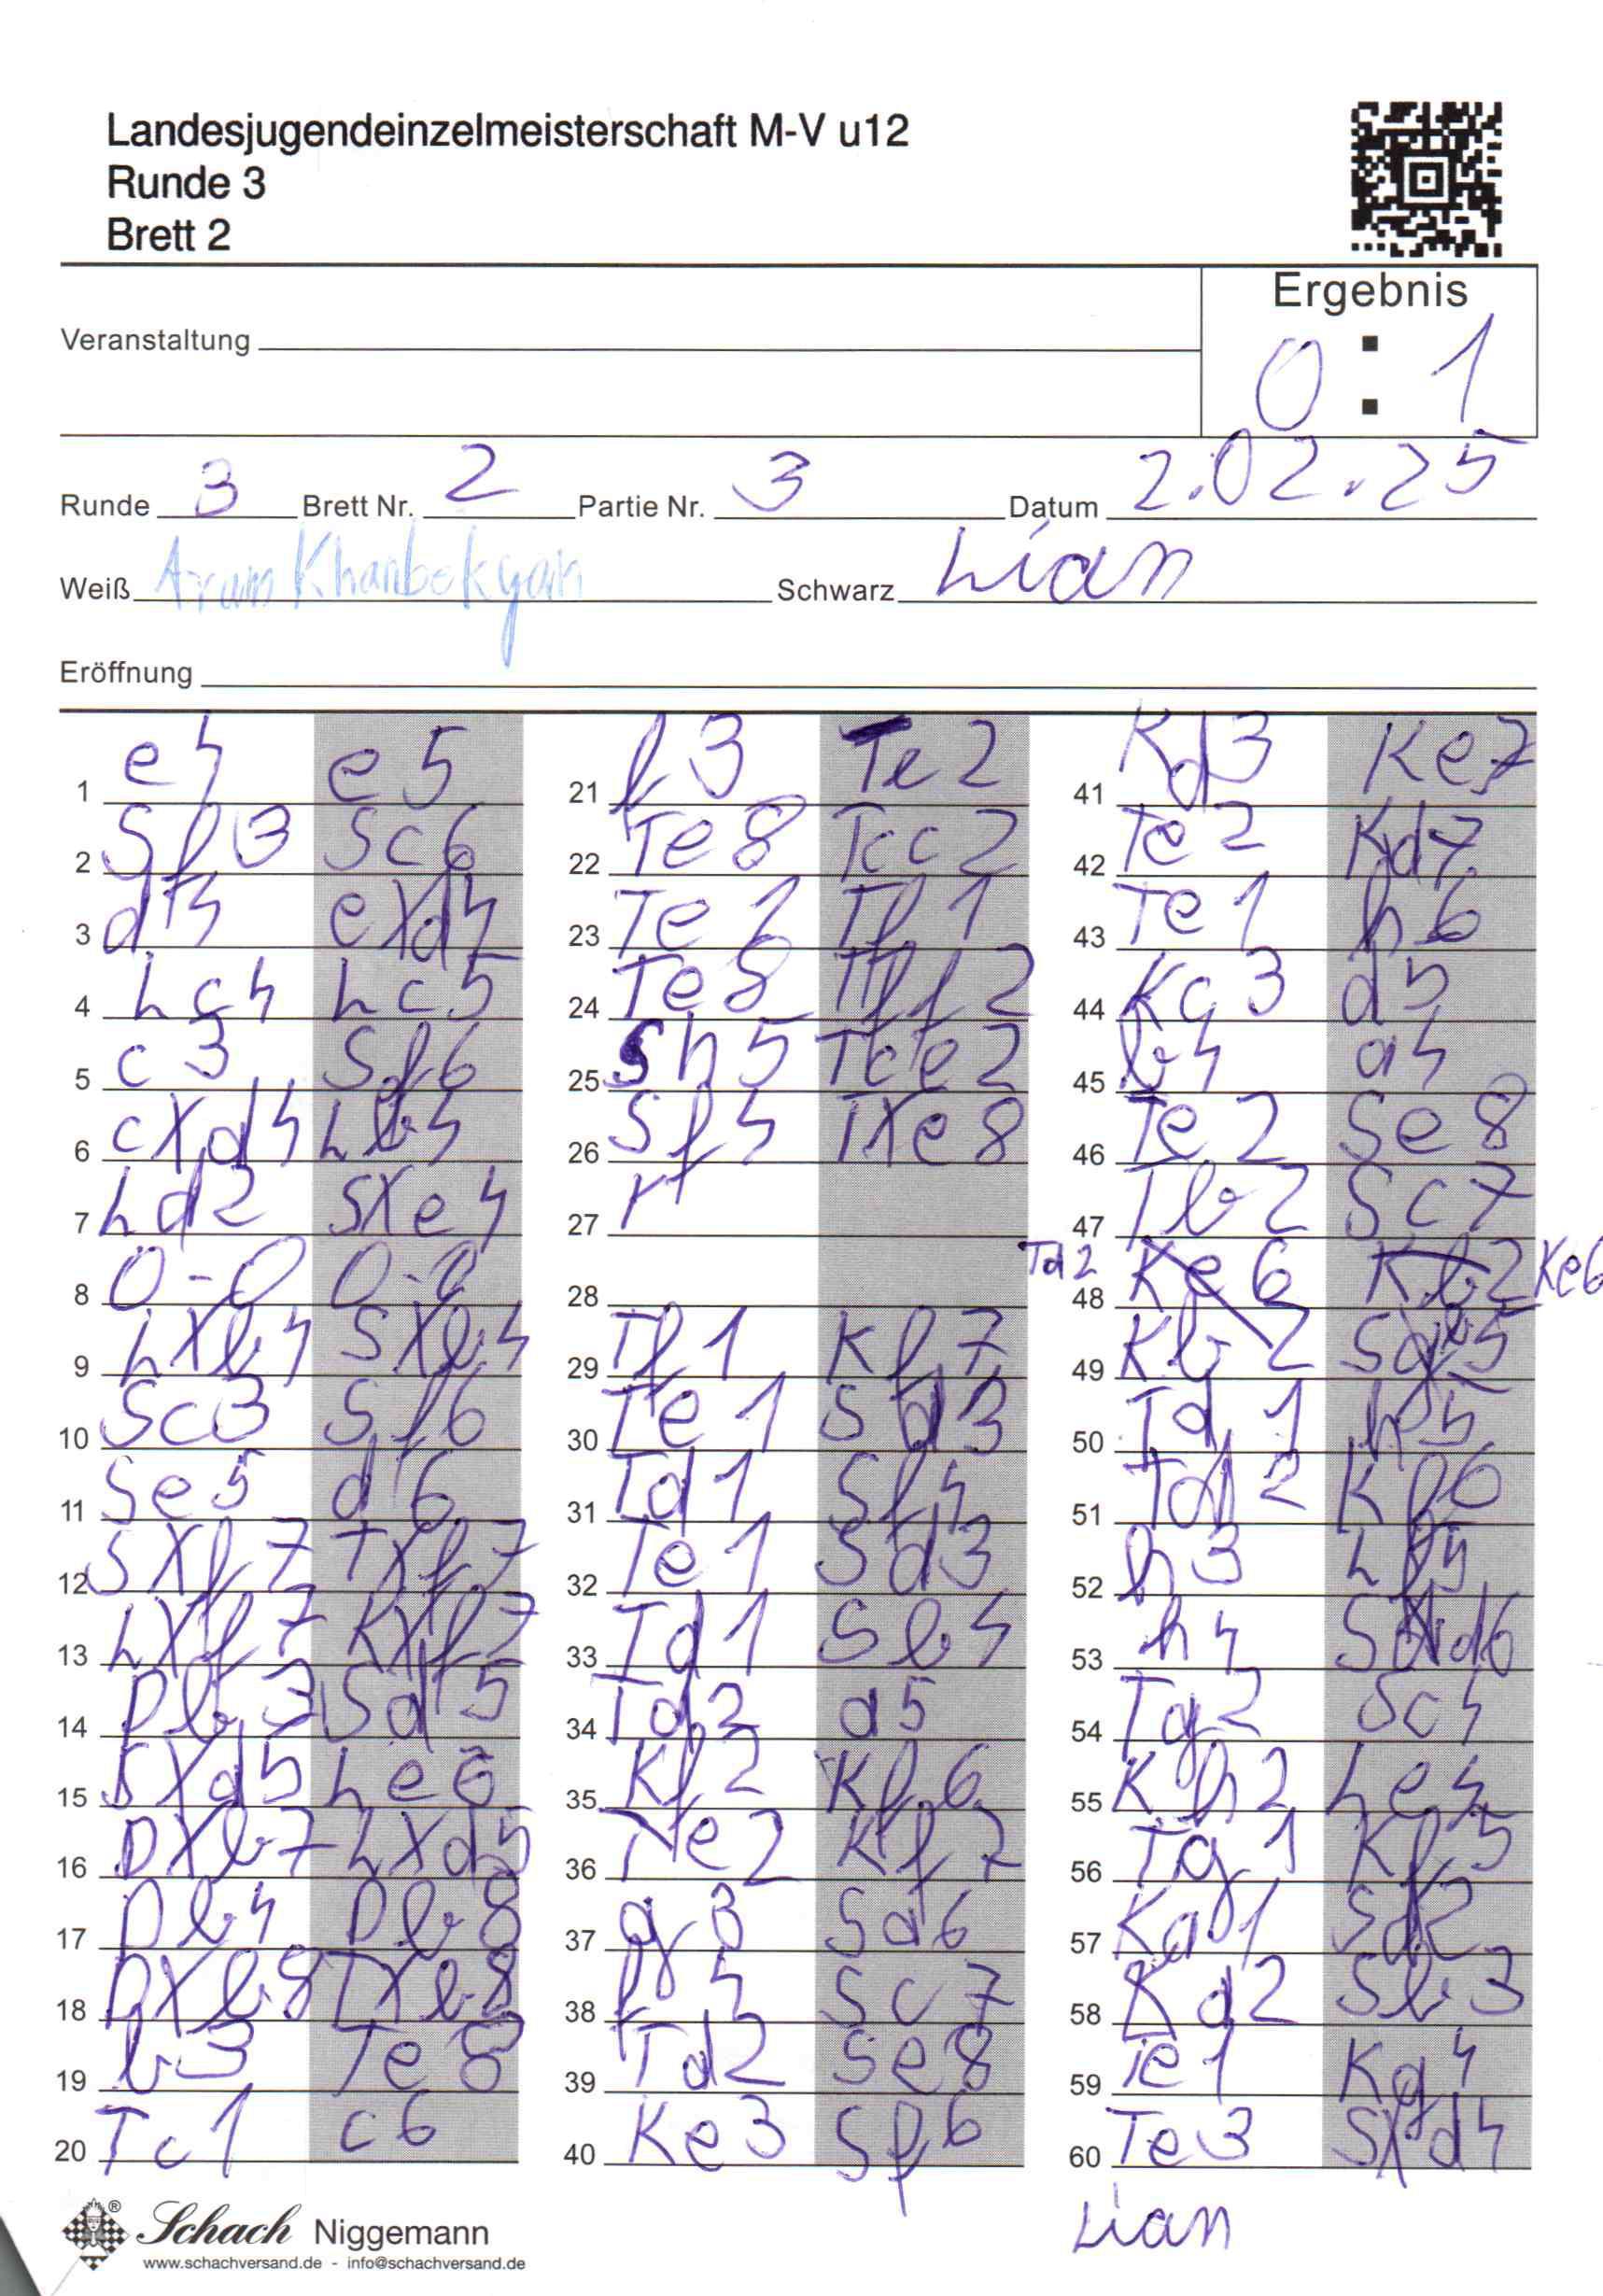 Landesjugendeinzelmeisterschaft M-V u12
Runde 3
Brett 2
Ergebnis
0 : 1
Veranstaltung
Runde 3 Brett Nr. 2 Partie Nr. 3 Datum 2.02.25
Weiß Aram Khanbekyan Schwarz Lian
Eröffnung
1 e4 e5
2 Sf3 Sc6
3 d4 exd4
4 Lc4 Lc5
5 c3 Sf6
6 cxd4 Lb4
7 Ld2 Sxe4
8 0-0 0-0
9 Lxb4 Sxb4
10 Sc3 Sf6
11 Se5 d6
12 Sxf7 Txf7
13 Lxf7 Kxf7
14 Db3 Sd5
15 Sxd5 Le6
16 Dxb7 Lxd5
17 Db4 Db8
18 Dxb8 Txb8
19 b3 Te8
20 Tc1 c6
21 f3 Te2
22 Te8 Tcc2
23 Te1 Tf1
24 Te8 Tff2
25 Sh5 Tce2
26 Sf4 Txe8
27
28
29 Tf1 Kf7
30 Te1 Sd3
31 Td1 Sf4
32 Te1 Sd3
33 Td1 Sb4
34 Td2 a5
35 Kf2 Kf6
36 Te2 Kf7
37 g3 Sa6
38 f4 Sc7
39 Td2 Se8
40 Ke3 Sf6
41 Kd3 Ke7
42 Te2 Kd7
43 Te1 h6
44 Kc3 d5
45 b4 a4
46 Te2 Se8
47 Tb2 Sc7
48 Td2 Ke6
49 Kb2 Sb5
50 Td1 h5
51 Td2 Kf6
52 h3 Lf5
53 h4 Sd6
54 Tg2 Sc4
55 Kh2 Le4
56 Tg1 Kf5
57 Ka1 Sd2
58 Kd2 Sb3
59 Te1 Kg4
60 Te3 Sxd4
Lian
Schach Niggemann
www.schachversand.de - info@schachversand.de